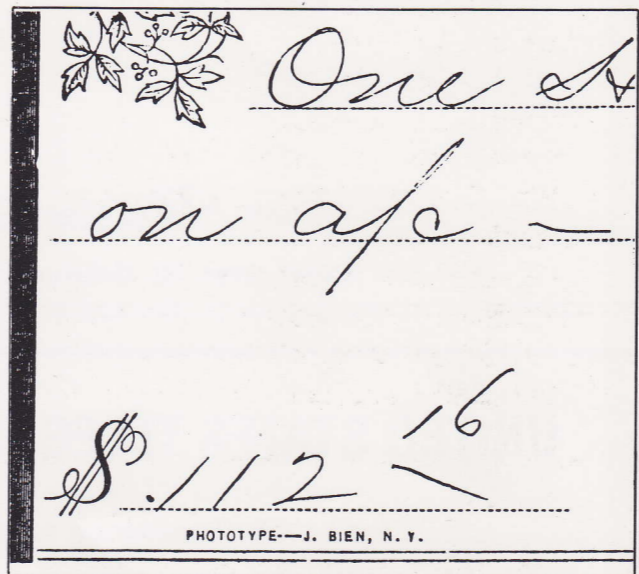 One
on a/c —
$.112 16
PHOTOTYPE-—J. BIEN, N. Y.